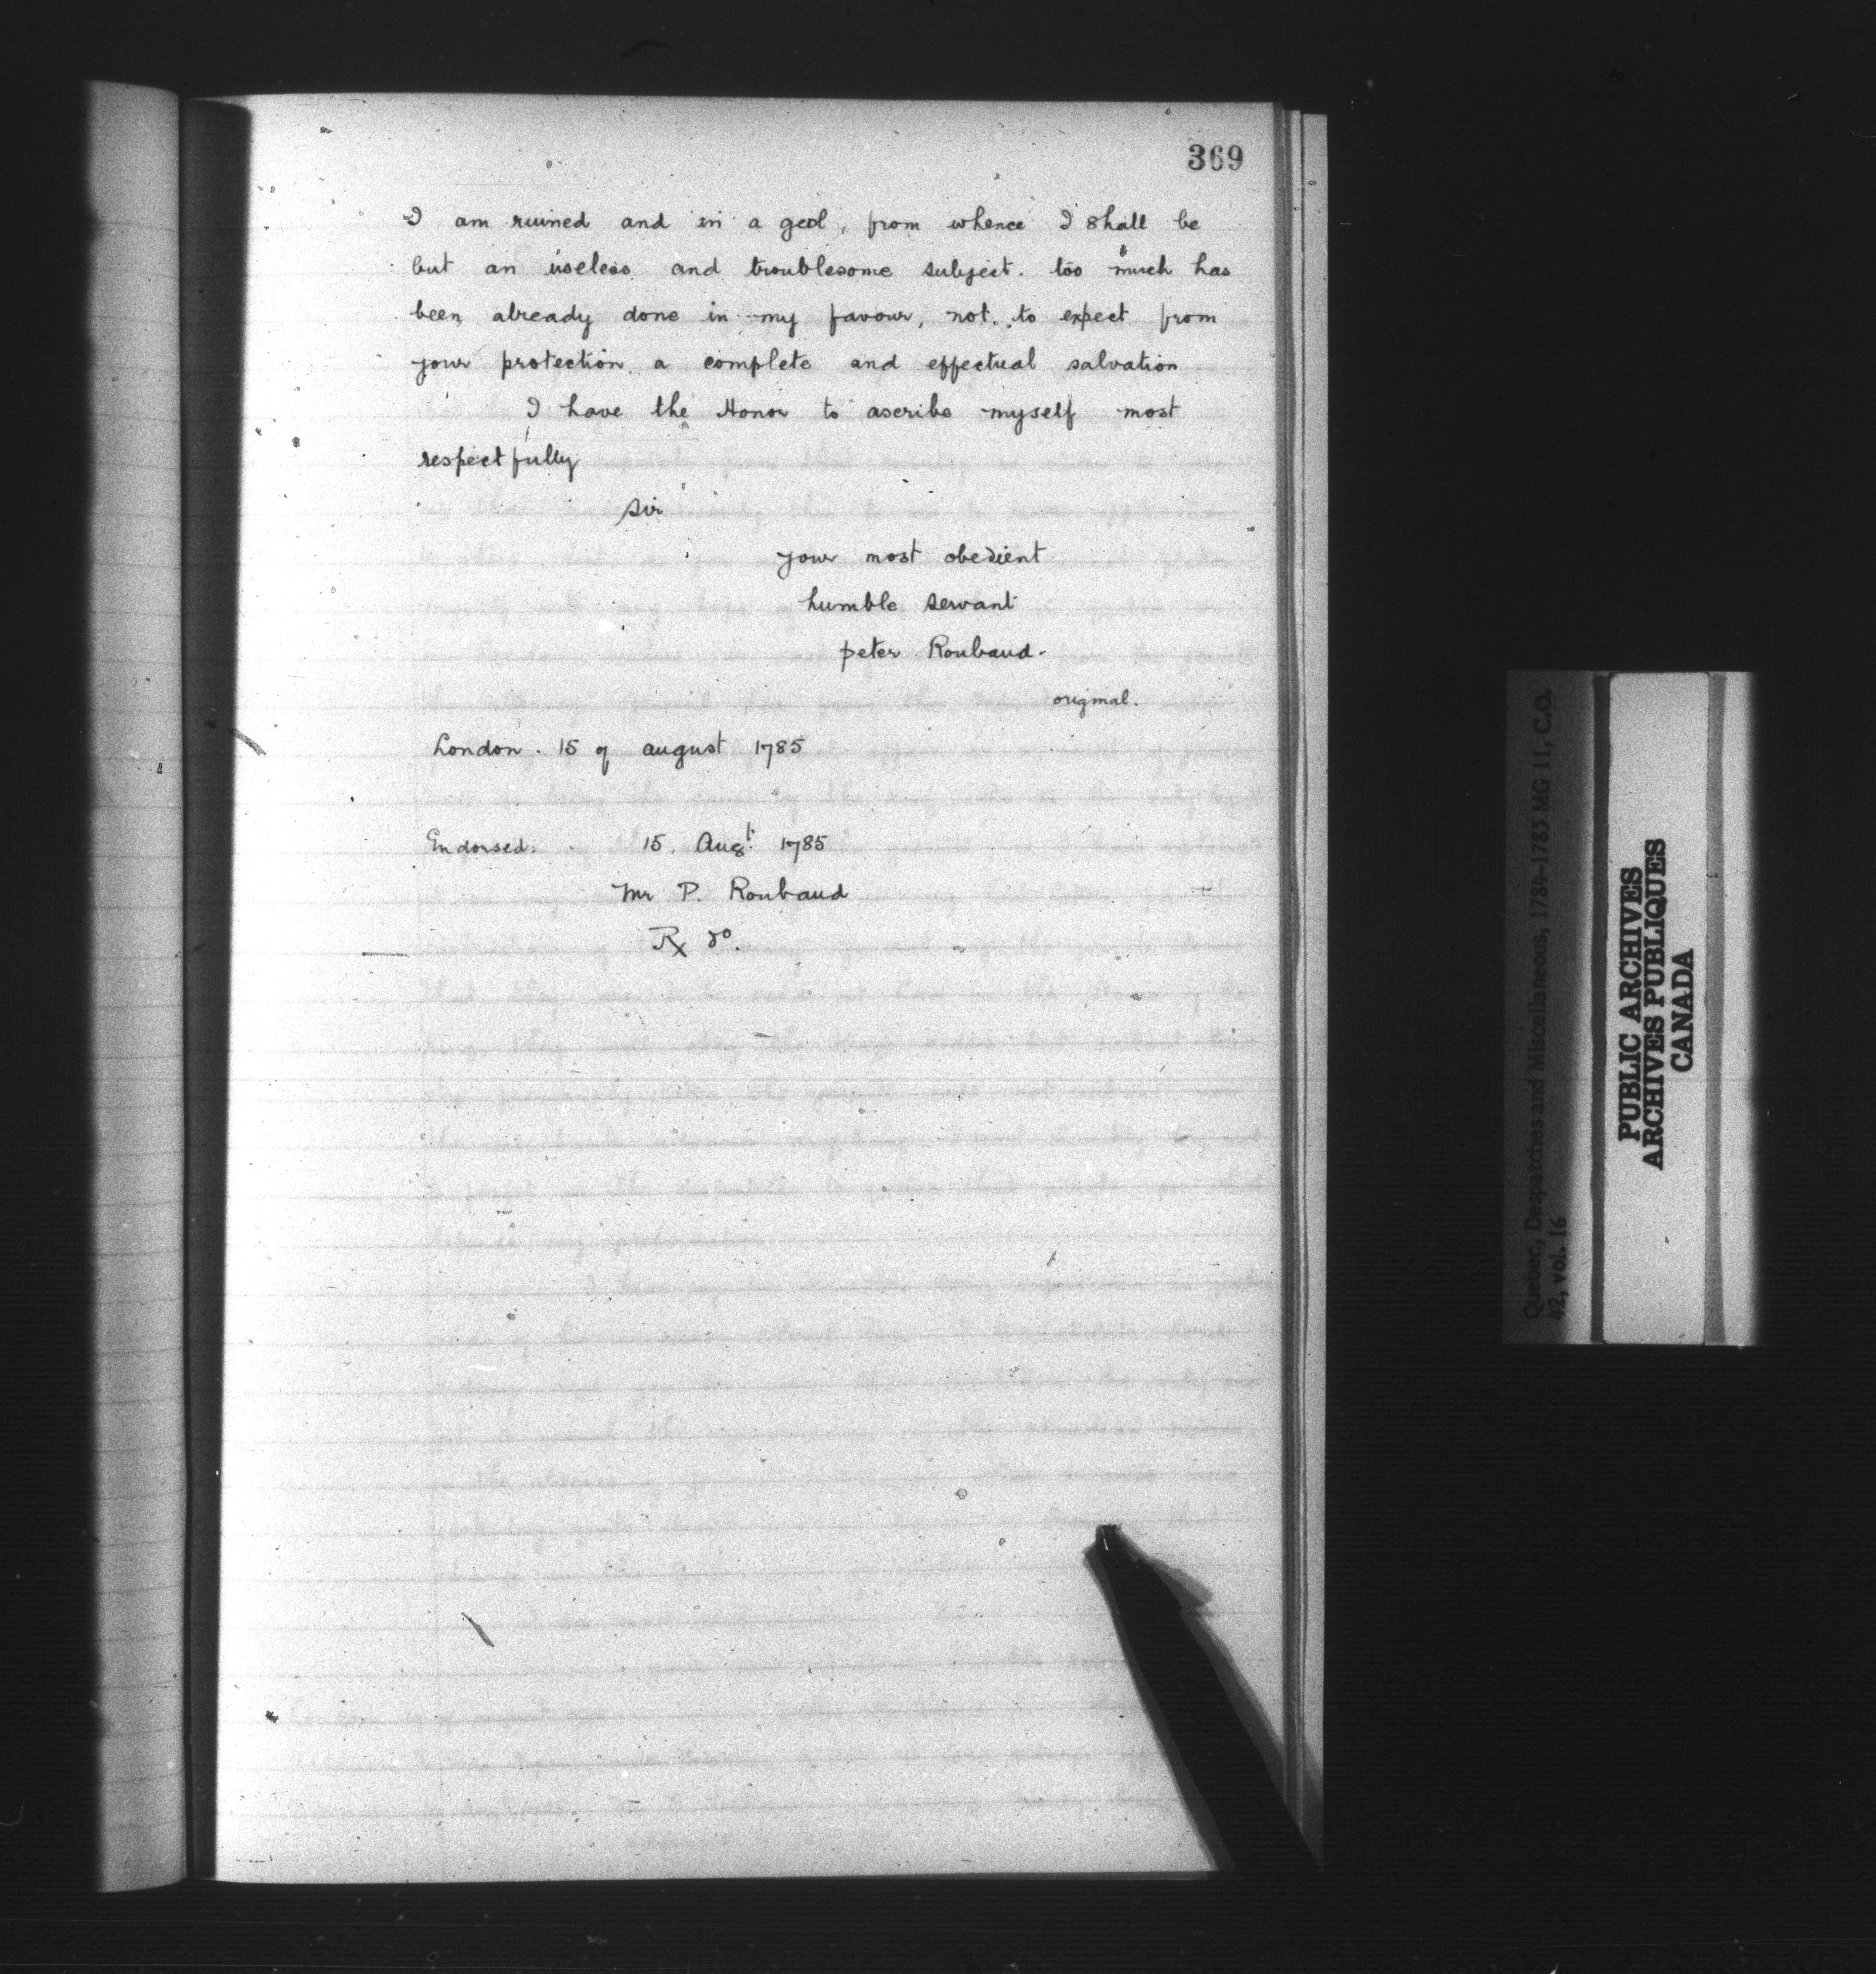 369
I am ruined and in a geol, from whence I shall be
but an useless and troublesome subject. too much has
been already done in my favour, not to expect from
your protection a complete and effectual salvation
I have the Honor to ascribe myself most
respectfully
Sir
your most obedient
humble servant
peter Roubaud.
original.
London. 15 of august 1785
Endorsed: 15. Augt. 1785
Mr P. Roubaud
Rx do.
Quebec, Despatches and Miscellaneous, 1784-1785 MG 11, C.O.
42, vol. 16
PUBLIC ARCHIVES
ARCHIVES PUBLIQUES
CANADA